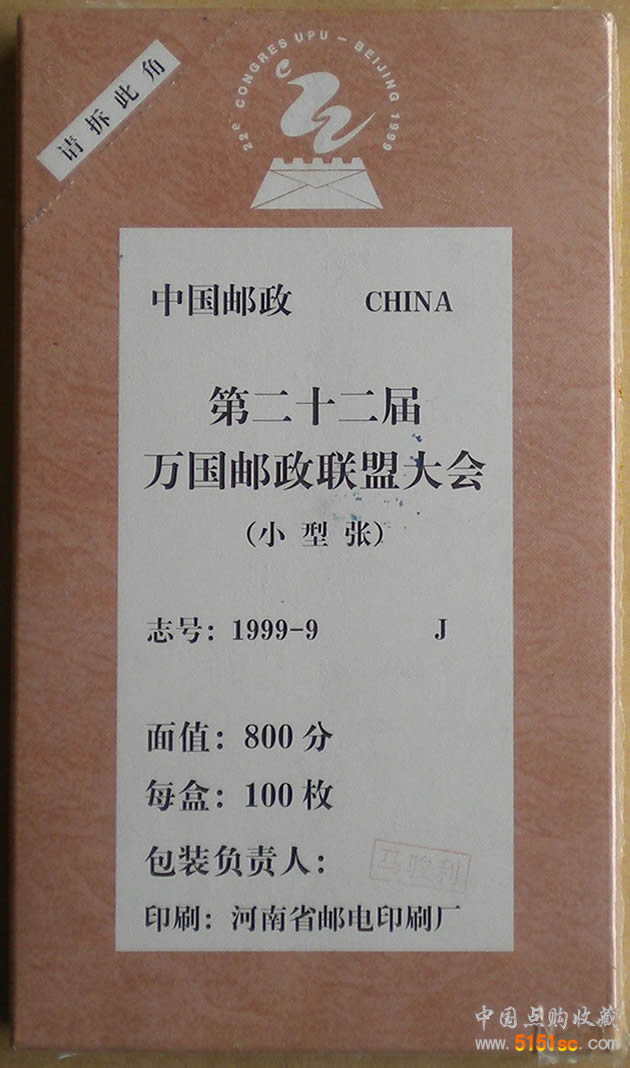 请拆此角
22e CONGRES UPU - BEIJING 1999
中国邮政 CHINA
第二十二届
万国邮政联盟大会
(小型张)
志号: 1999-9 J
面值: 800分
每盒: 100枚
包装负责人:
马骏利
印刷: 河南省邮电印刷厂
中国点购收藏
www.5151sc.com